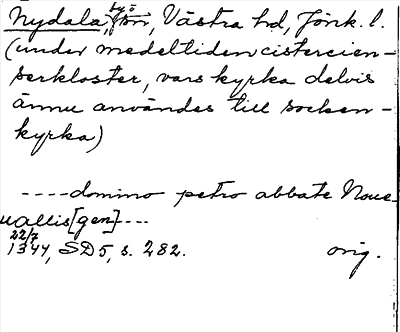 Nydala, by i sn, Västra hd, Jönk. l.
(under medeltiden cistercien-
serkloster, vars kyrka delvis
ännu användes till socken-
kyrka)
----domino petro abbate Noue-
uallis[gen]---
22/7
1344, SD5, s. 282. orig.